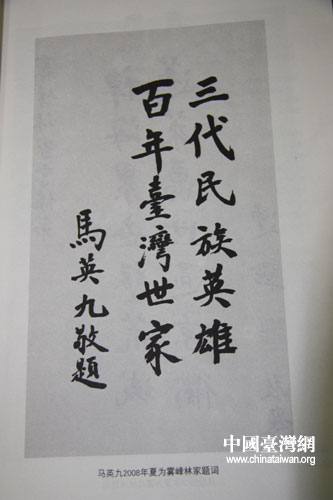 三代民族英雄
百年臺灣世家
馬英九敬題
马英九2008年夏为雾峰林家题词
中國臺灣網
www.chinataiwan.org